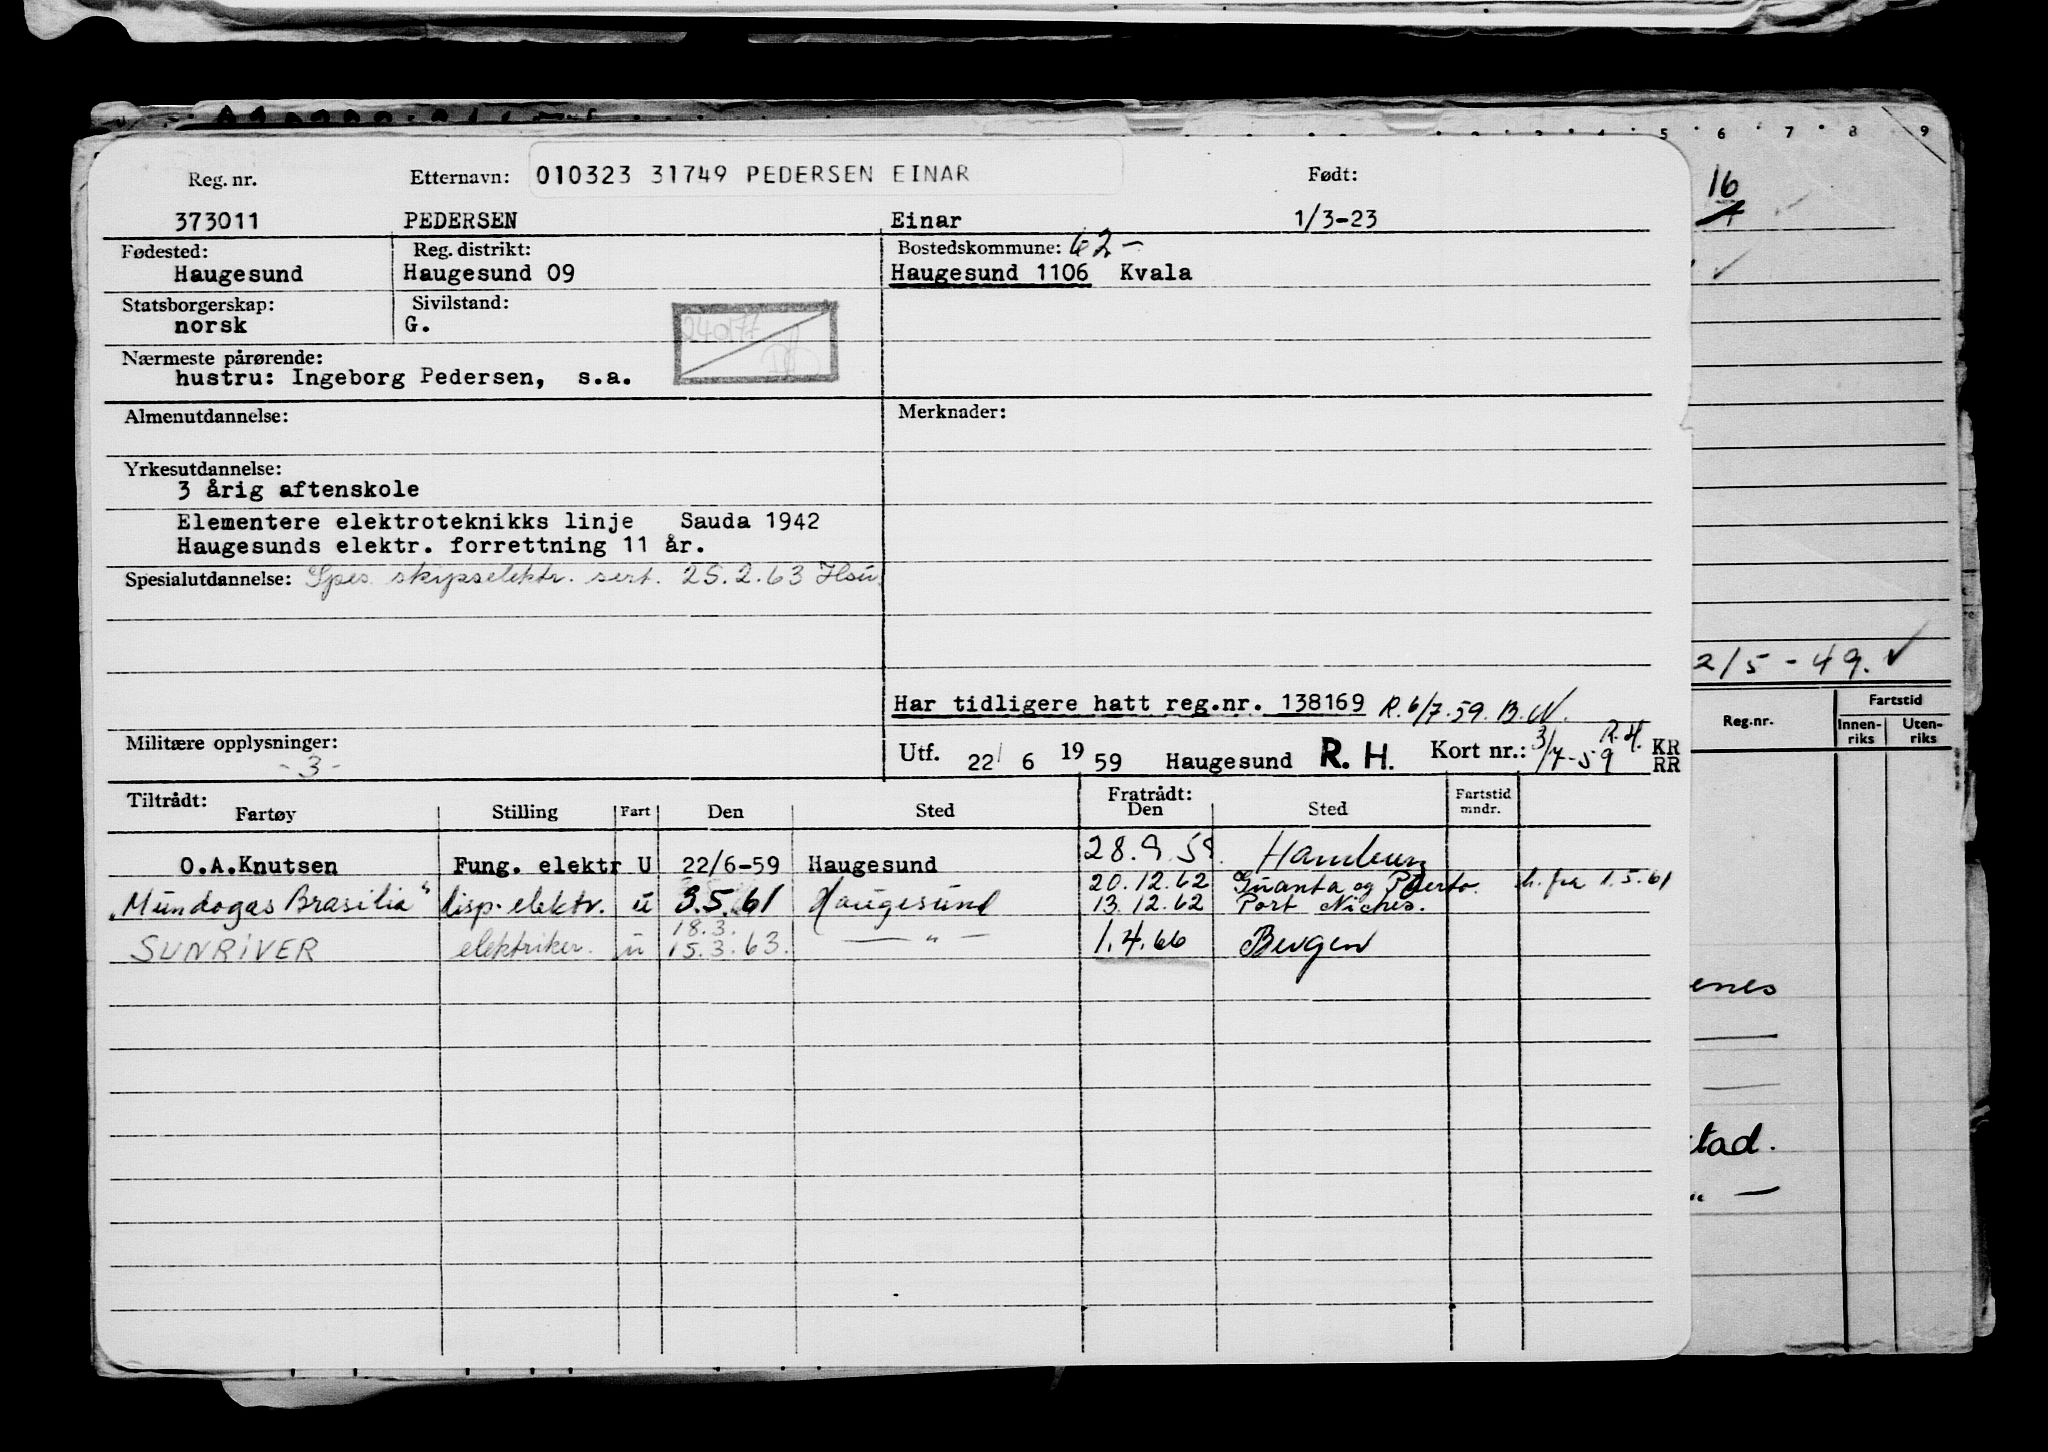 5 6 7 8 9
16
Reg. nr. Etternavn: 010323 31749 PEDERSEN EINAR Født:
373011 PEDERSEN Einar 1/3-23
Fødested: Reg. distrikt: Bostedskommune: 62-
Haugesund Haugesund 09 Haugesund 1106 Kvala
Statsborgerskap: Sivilstand:
norsk G. 240177
Nærmeste pårørende:
hustru: Ingeborg Pedersen, s.a.
Almenutdannelse: Merknader:
Yrkesutdannelse:
3 årig aftenskole
Elementere elektroteknikks linje Sauda 1942
Haugesunds elektr. forrettning 11 år.
Spesialutdannelse: Spes. skipselektr. sert. 25.2.63 Hsu.
2/5-49.
Har tidligere hatt reg.nr. 138169 R. 6/7.59. B.W.
Militære opplysninger: Utf. 22/ 6 1959 Haugesund R. H. Kort nr.: 3/7-59 R.H. KR RR
-3-
Reg.nr. Fartstid
Innen-riks Uten-riks
Tiltrådt: Fratrådt:
Fartøy Stilling Fart Den Sted Den Sted Fartstid mndr.
O.A.Knutsen Fung. elektr U 22/6-59 Haugesund 28.9.59. Hamburg
20.12.62 Guanta og Puerto. h. fra 1.5.61
"Mundogas Brasilia" disp. elektr. u 3.5.61 Haugesund 13.12.62 Port Niches.
18.3.
SUNRIVER elektriker. u 15.3.63. —„— 1.4.66 Bergen
enes
tad.
„ —